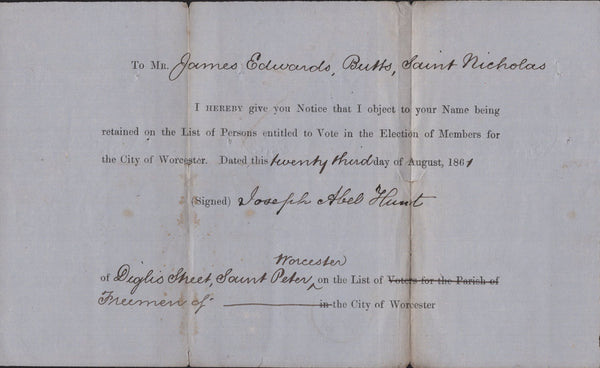 To Mr. James Edwards, Butts, Saint Nicholas
I HEREBY give you Notice that I object to your Name being
retained on the List of Persons entitled to Vote in the Election of Members for
the City of Worcester. Dated this twenty third day of August, 1861
(Signed) Joseph Abel Hunt
Worcester
of Diglis Street, Saint Peter ^ on the List of Voters for the Parish of
Freemen of in the City of Worcester